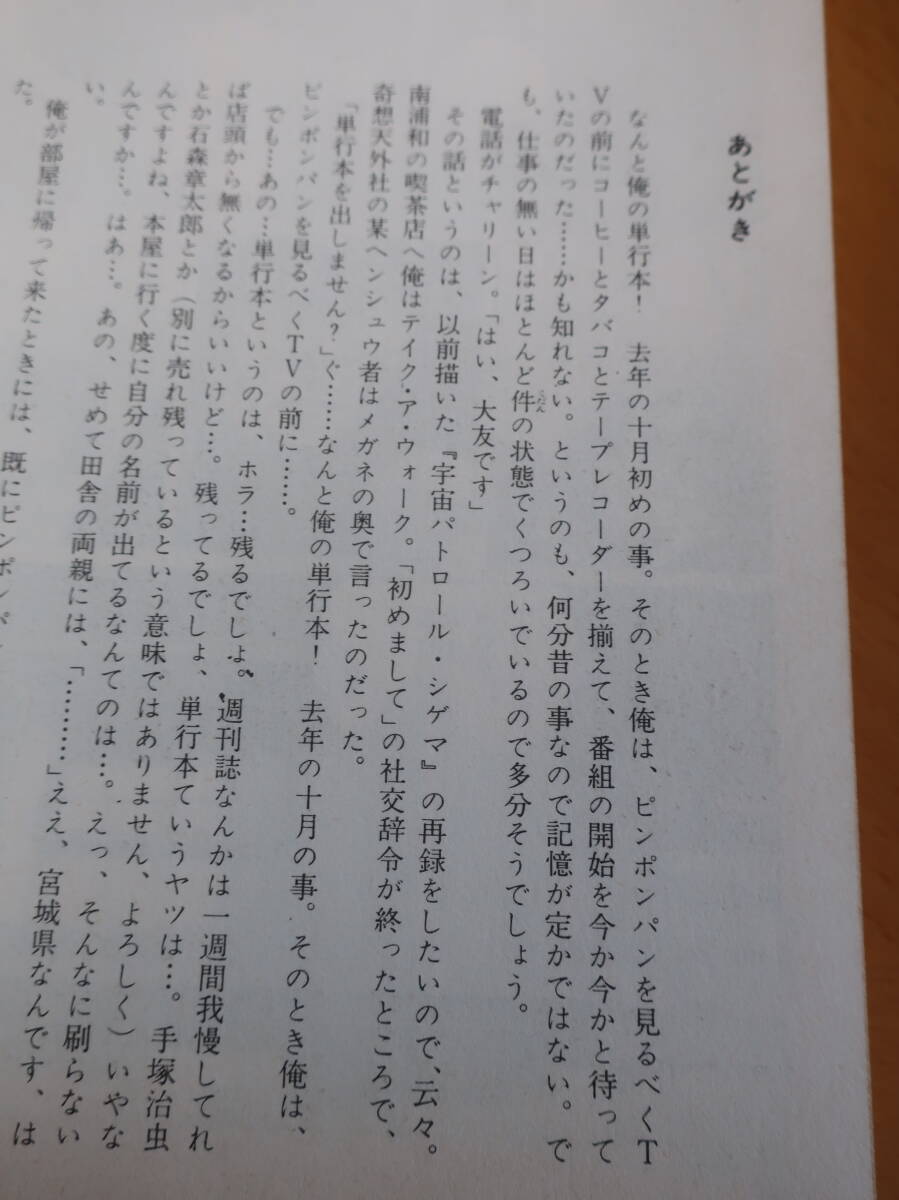 あとがき
なんと俺の単行本!　去年の十月初めの事。そのとき俺は、ピンポンパンを見るべくT
Vの前にコーヒーとタバコとテープレコーダーを揃えて、番組の開始を今か今かと待って
いたのだった……かも知れない。というのも、何分昔の事なので記憶が定かではない。で
も、仕事の無い日はほとんど件の状態でくつろいでいるので多分そうでしょう。
電話がチャリーン。「はい、大友です」
その話というのは、以前描いた『宇宙パトロール・シゲマ』の再録をしたいので、云々。
南浦和の喫茶店へ俺はテイク・ア・ウォーク。「初めまして」の社交辞令が終ったところで、
奇想天外社の某ヘンシュウ者はメガネの奥で言ったのだった。
「単行本を出しません?」ぐ……なんと俺の単行本!　去年の十月の事。そのとき俺は、
ピンポンパンを見るべくTVの前に……。
でも…あの…単行本というのは、ホラ…残るでしょ。週刊誌なんかは一週間我慢してれ
ば店頭から無くなるからいいけど…。残ってるでしょ、単行本ていうヤツは…。手塚治虫
とか石森章太郎とか（別に売れ残っているという意味ではありません、よろしく）いやな
んですよね、本屋に行く度に自分の名前が出てるなんてのは…。えっ、そんなに刷らない
んですか…。はあ…。あの、せめて田舎の両親には、「………」ええ、宮城県なんです、は
い。
俺が部屋に帰って来たときには、既にピンポンパ
た。